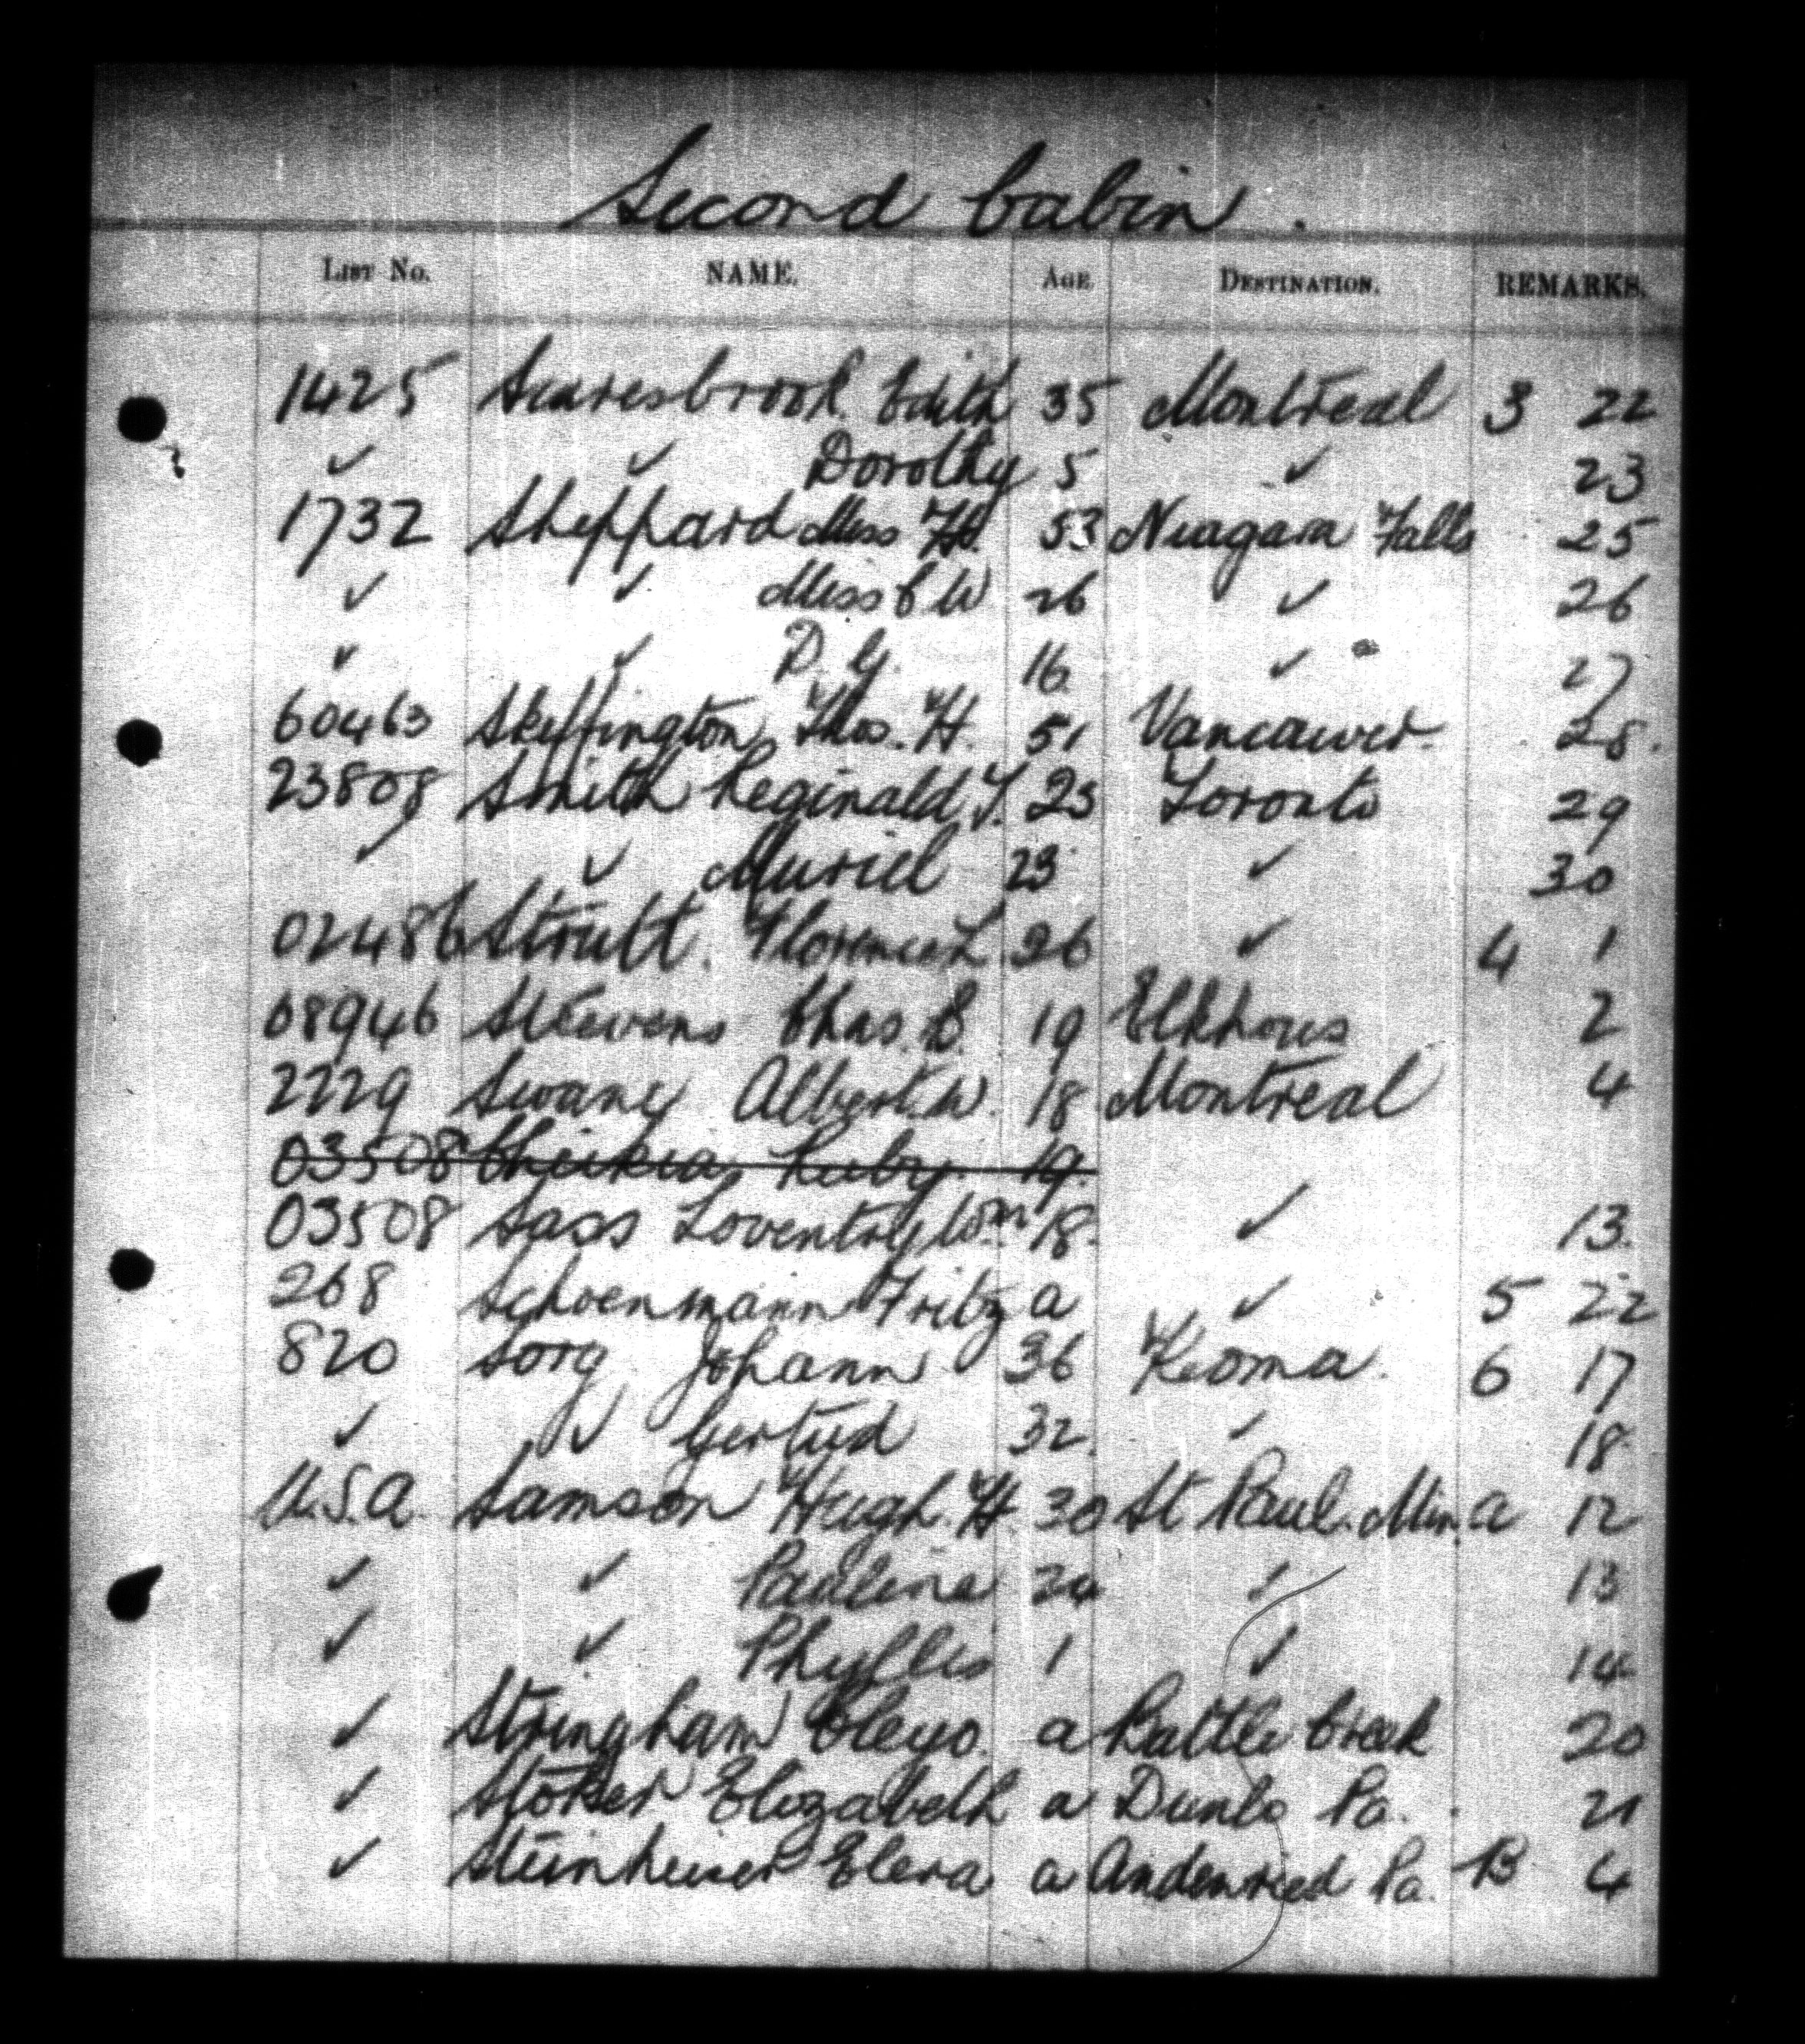 Second Cabin.
LIST No. NAME. AGE. DESTINATION. REMARKS.
1425 Scaresbrook Edith 35 Montreal 3 22
✓ ✓ Dorothy 5 ✓ 23
1732 Sheppard Miss H. 53 Niagara Falls 25
✓ ✓ Miss C W 26 ✓ 26
✓ ✓ D. G. 16 ✓ 27
60463 Skeffington Thos. H. 51 Vancouver. 28.
23808 Smith Reginald T. 25 Toronto 29
✓ ✓ Muriel 23 ✓ 30
02486 Strutt. Florence L 26 ✓ 4 1
08946 Steevens Chas. B. 19 Elkhorn 2
2229 Swany Albert. W. 18 Montreal 4
03508 Ruby. 19.
03508 Sass Loventry Wm 18. ✓ 13.
268 Schoenmann Fritz a ✓ 5 22
820 Sorg Johann 36 Keoma. 6 17
✓ ✓ Gertud 32. ✓ 18
U.S.A. Samson Hugh. H. 30 St Paul. Min. a 12
✓ ✓ Pauline 24 ✓ 13
✓ ✓ Phyllis 1 ✓ 14
✓ Stringham Cleyo. a Battle Creek 20
✓ Stoker Elizabeth a Dunlo Pa. 21
✓ Steinheiser Elera a Andenried Pa. B 4